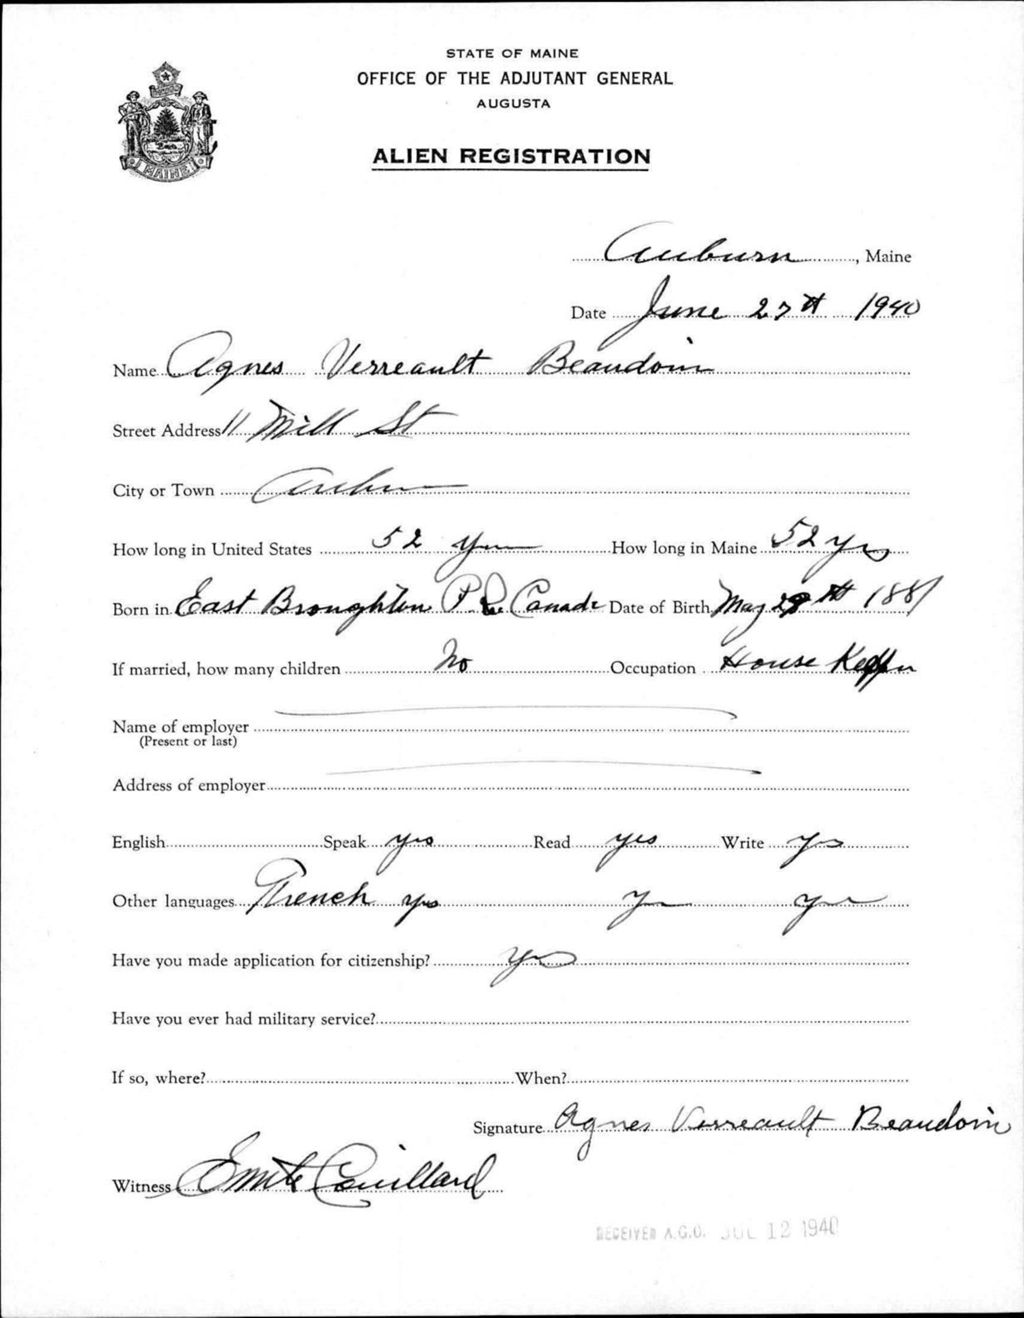 STATE OF MAINE
OFFICE OF THE ADJUTANT GENERAL
AUGUSTA
ALIEN REGISTRATION
MAINE
Auburn, Maine
Date June 27th 1940
Name Agnes Verreault Beaudoin
Street Address 11 Mill St
City or Town Auburn
How long in United States 52 years How long in Maine 52 yrs
Born in East Broughton P.Q. Canada Date of Birth May 29th 1881
If married, how many children No Occupation House Keeper
Name of employer
(Present or last)
Address of employer
English Speak yes Read yes Write yes
Other languages French yes yes yes
Have you made application for citizenship? yes
Have you ever had military service?
If so, where? When?
Signature Agnes Verreault Beaudoin
Witness Emile Couillard
RECEIVED A.G.O. JUL 12 1940